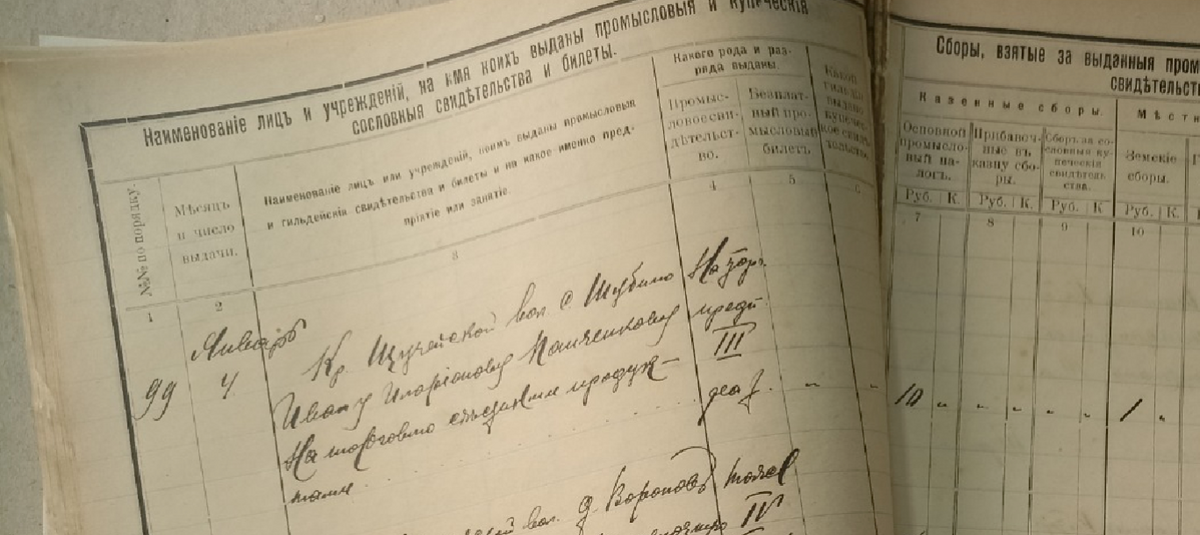 Наименованіе лицъ и учрежденій, на имя коихъ выданы промысловыя и купеческія
сословныя свидѣтельства и билеты.
№№ по порядку.
Мѣсяцъ
и число
выдачи.
Наименованіе лицъ или учрежденій, коимъ выданы промысловыя
и гильдейскія свидѣтельства и билеты и на какое именно пред-
пріятіе или занятіе.
Какого рода и раз-
ряда выданы.
Промыс-
ловое сви-
дѣтельст-
во.
Безплат-
ный про-
мысловый
билетъ.
1 2 3 4 5 6
Январь
99 4
Кр. Щучейской вол. с. Шубино
Ивану Иларіонову
На торговлю съѣстными продук-
тами
На торг.
предп.
III
вол. д. Вороновъ
IV
Сборы, взятые за выданныя пром
свидѣтельств
Казенные сборы.
Мѣстн
Основной
промысло-
вый на-
логъ.
Прибавоч-
ные въ
казну сбо-
ры.
Сборъ за со-
словныя ку-
печескія
свидѣтель-
ства.
Земскіе
сборы.
Руб. К. Руб. К. Руб. К Руб. К.
7 8 9 10
10 „ „ „ „ „ 1 „